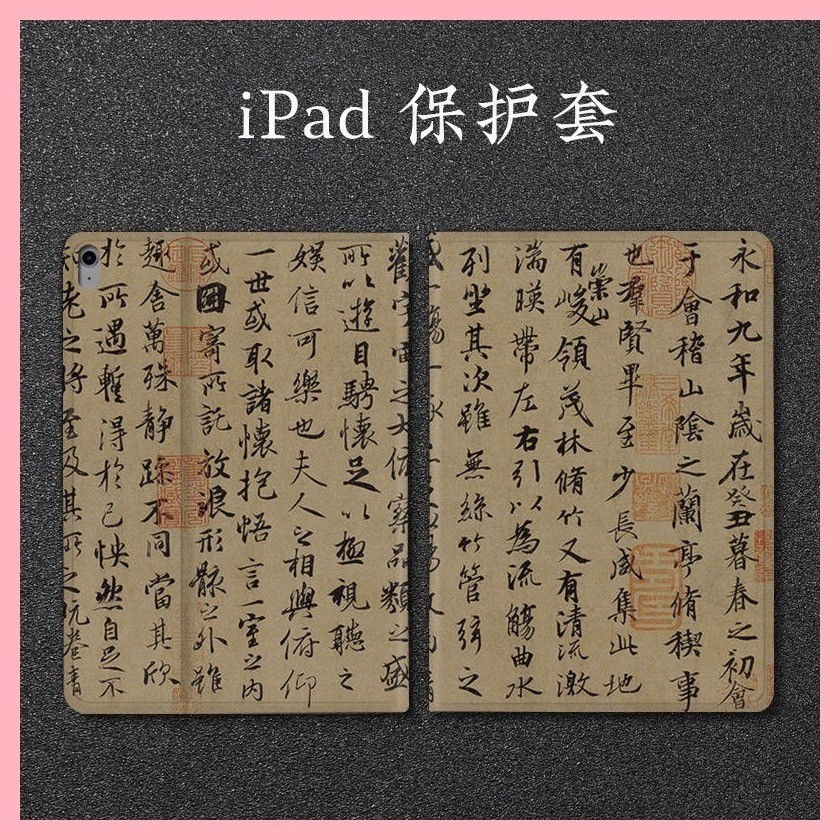 iPad 保护套
永和九年歲在癸丑暮春之初會
于會稽山陰之蘭亭脩稧事
也羣賢畢至少長咸集此地
有崇山峻領茂林脩竹又有清流激
湍暎帶左右引以為流觴曲水
列坐其次雖無絲竹管弦之
觀宇宙之大俯察品類之盛
所以遊目騁懷足以極視聽之
娛信可樂也夫人之相與俯仰
一世或取諸懷抱悟言一室之內
或因寄所託放浪形骸之外雖
趣舍萬殊靜躁不同當其欣
於所遇暫得於己怏然自足不
知老之將至及其所之